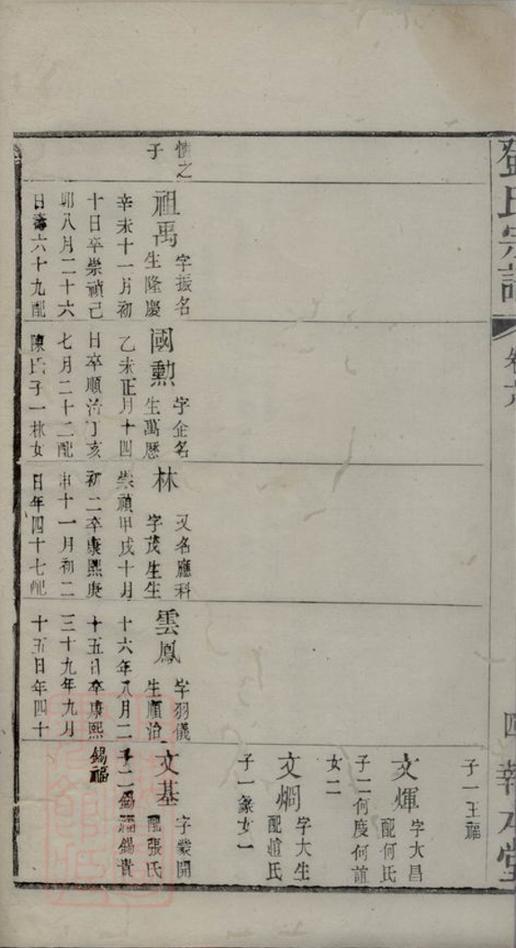 鄧氏宗譜
卷六
四
報本堂
慎之
子
祖禹
字振名
生隆慶
辛未十一月初
十日卒崇禎己
卯八月二十六
日壽六十九配
國勲
字企名
生萬曆
乙未正月十四
日卒順治丁亥
七月二十二配
陳氏子一林女
林
又名應科
字茂生生
崇禎甲戌十月
初二卒康熙庚
申十一月初二
日年四十七配
雲鳳
字羽儀
生順治
十六年八月二
十五日卒康熙
三十九年九月
十五日年四十
子一王福
文煇
字大昌
配何氏
子二何度何誼
女二
文烱
字大生
配趙氏
子一女一
文基
字業開
配張氏
子二錫福錫貴
錫福